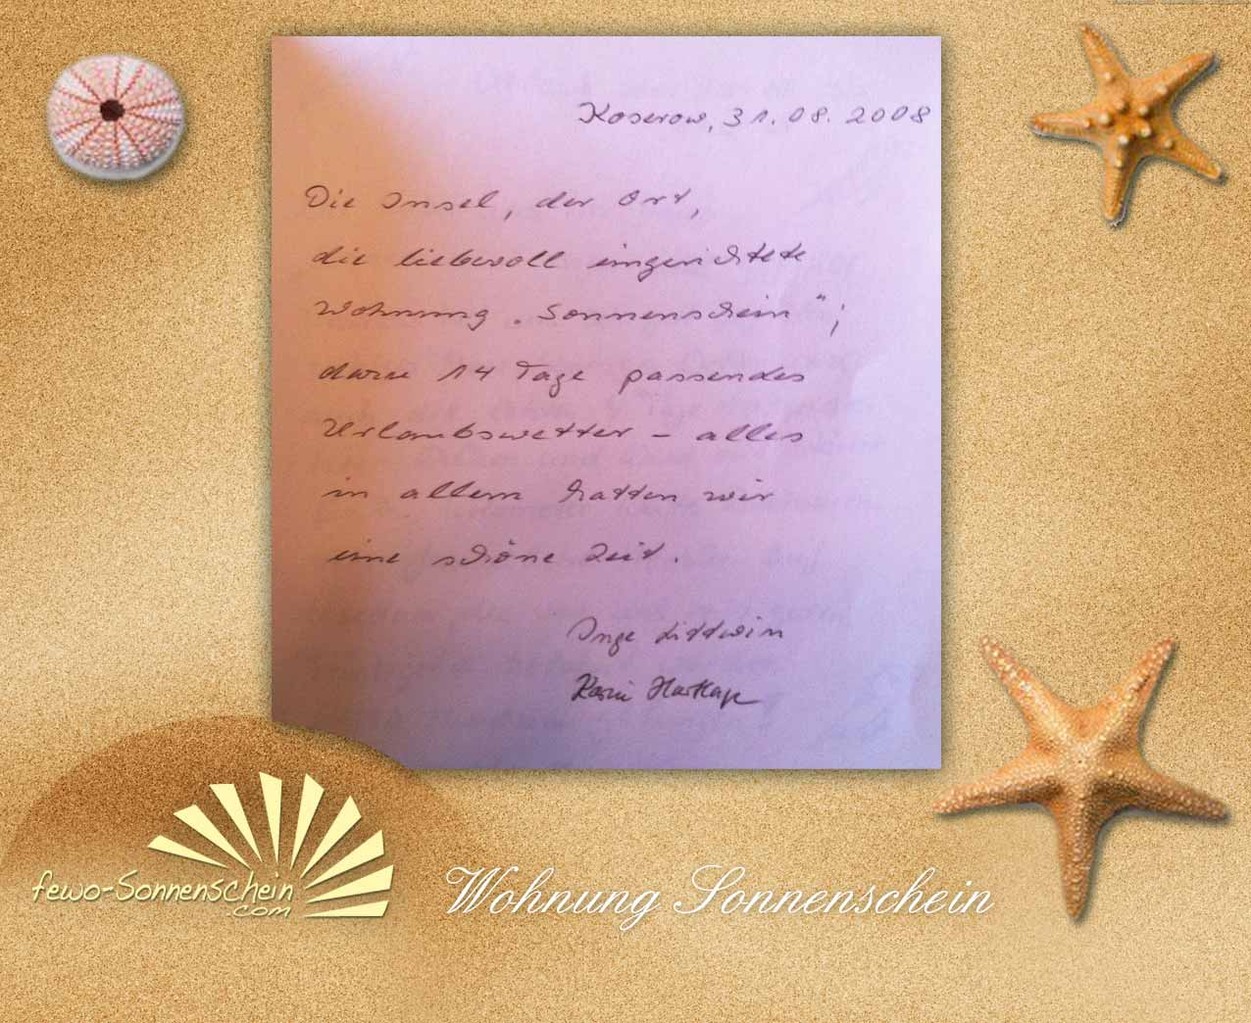 Koserow, 31.08.2008
Die Insel, der Ort,
die liebevoll eingerichtete
Wohnung „Sonnenschein“;
dazu 14 Tage passendes
Urlaubswetter – alles
in allem hatten wir
eine schöne Zeit.
Inge Littwin
Karin
fewo-Sonnenschein
.com
Wohnung Sonnenschein